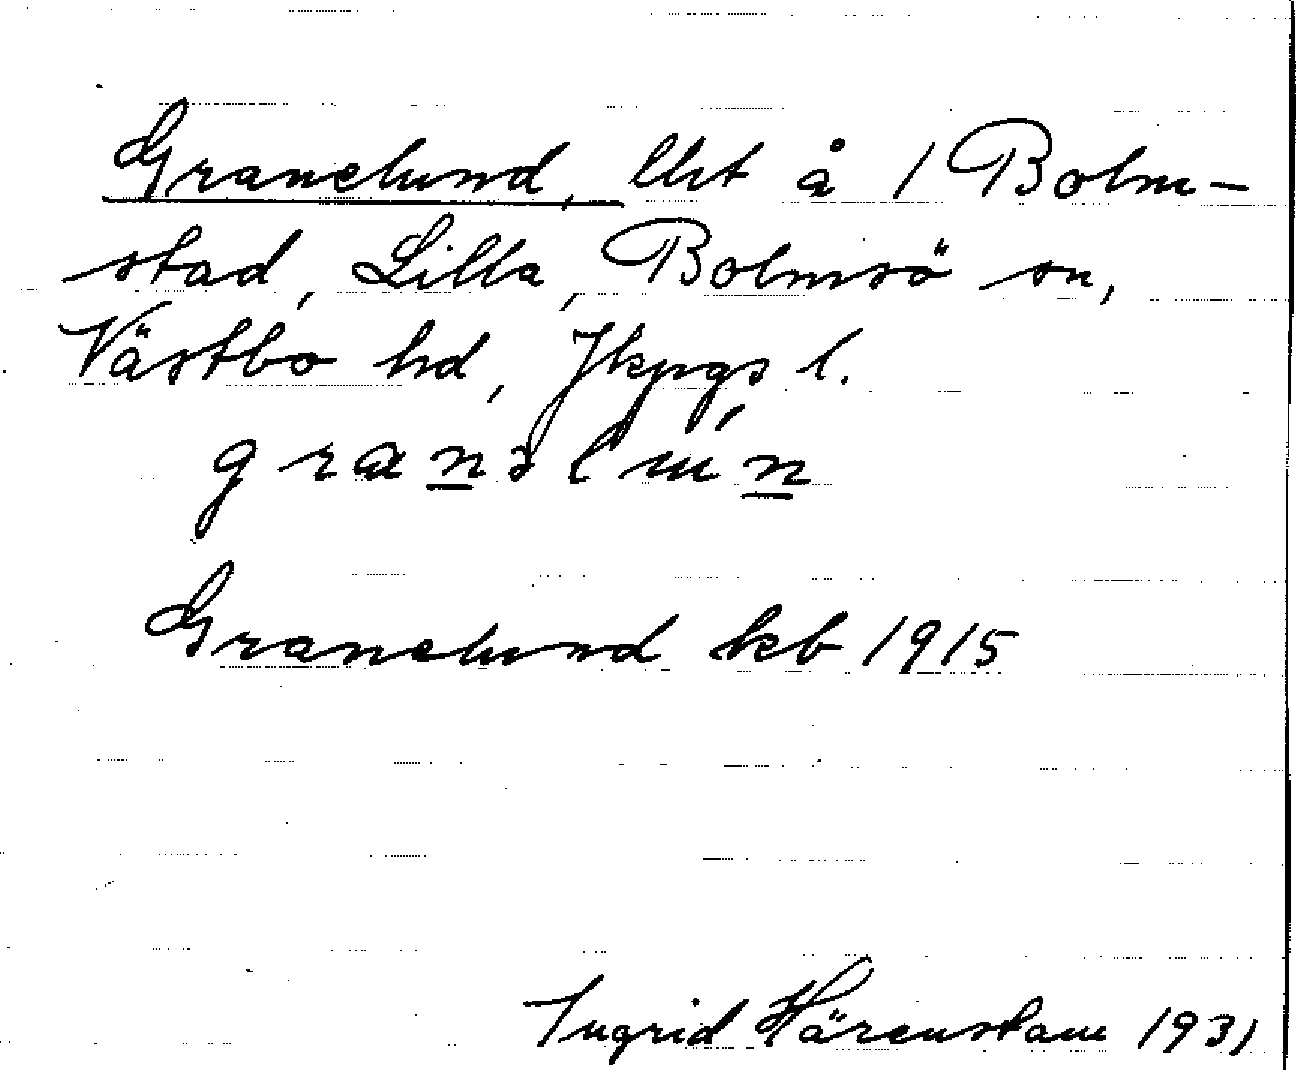 Granelund, lht å 1 Bolm-
stad, Lilla, Bolmsö sn,
Västbo hd, Jkpgs l.
granəlún
Granelund kb 1915
Ingrid Härenstam 1931